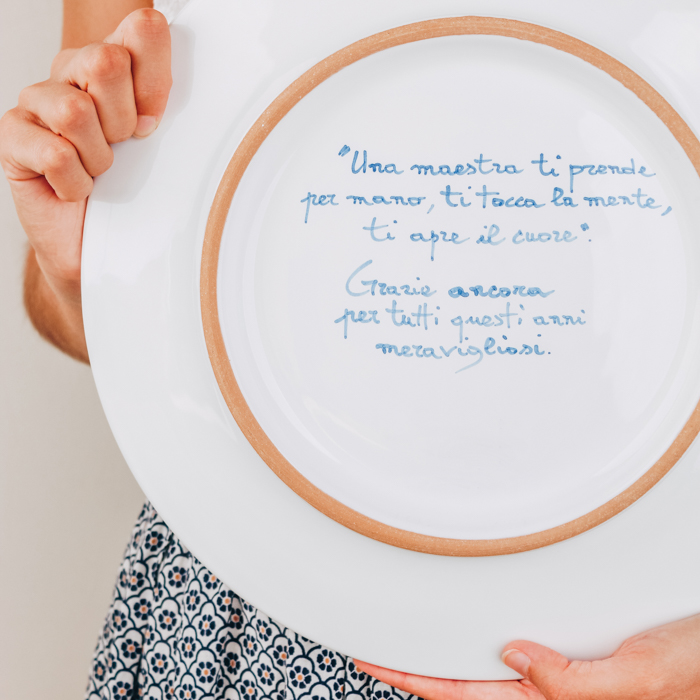 "Una maestra ti prende
per mano, ti tocca la mente,
ti apre il cuore".
Grazie ancora
per tutti questi anni
meravigliosi.